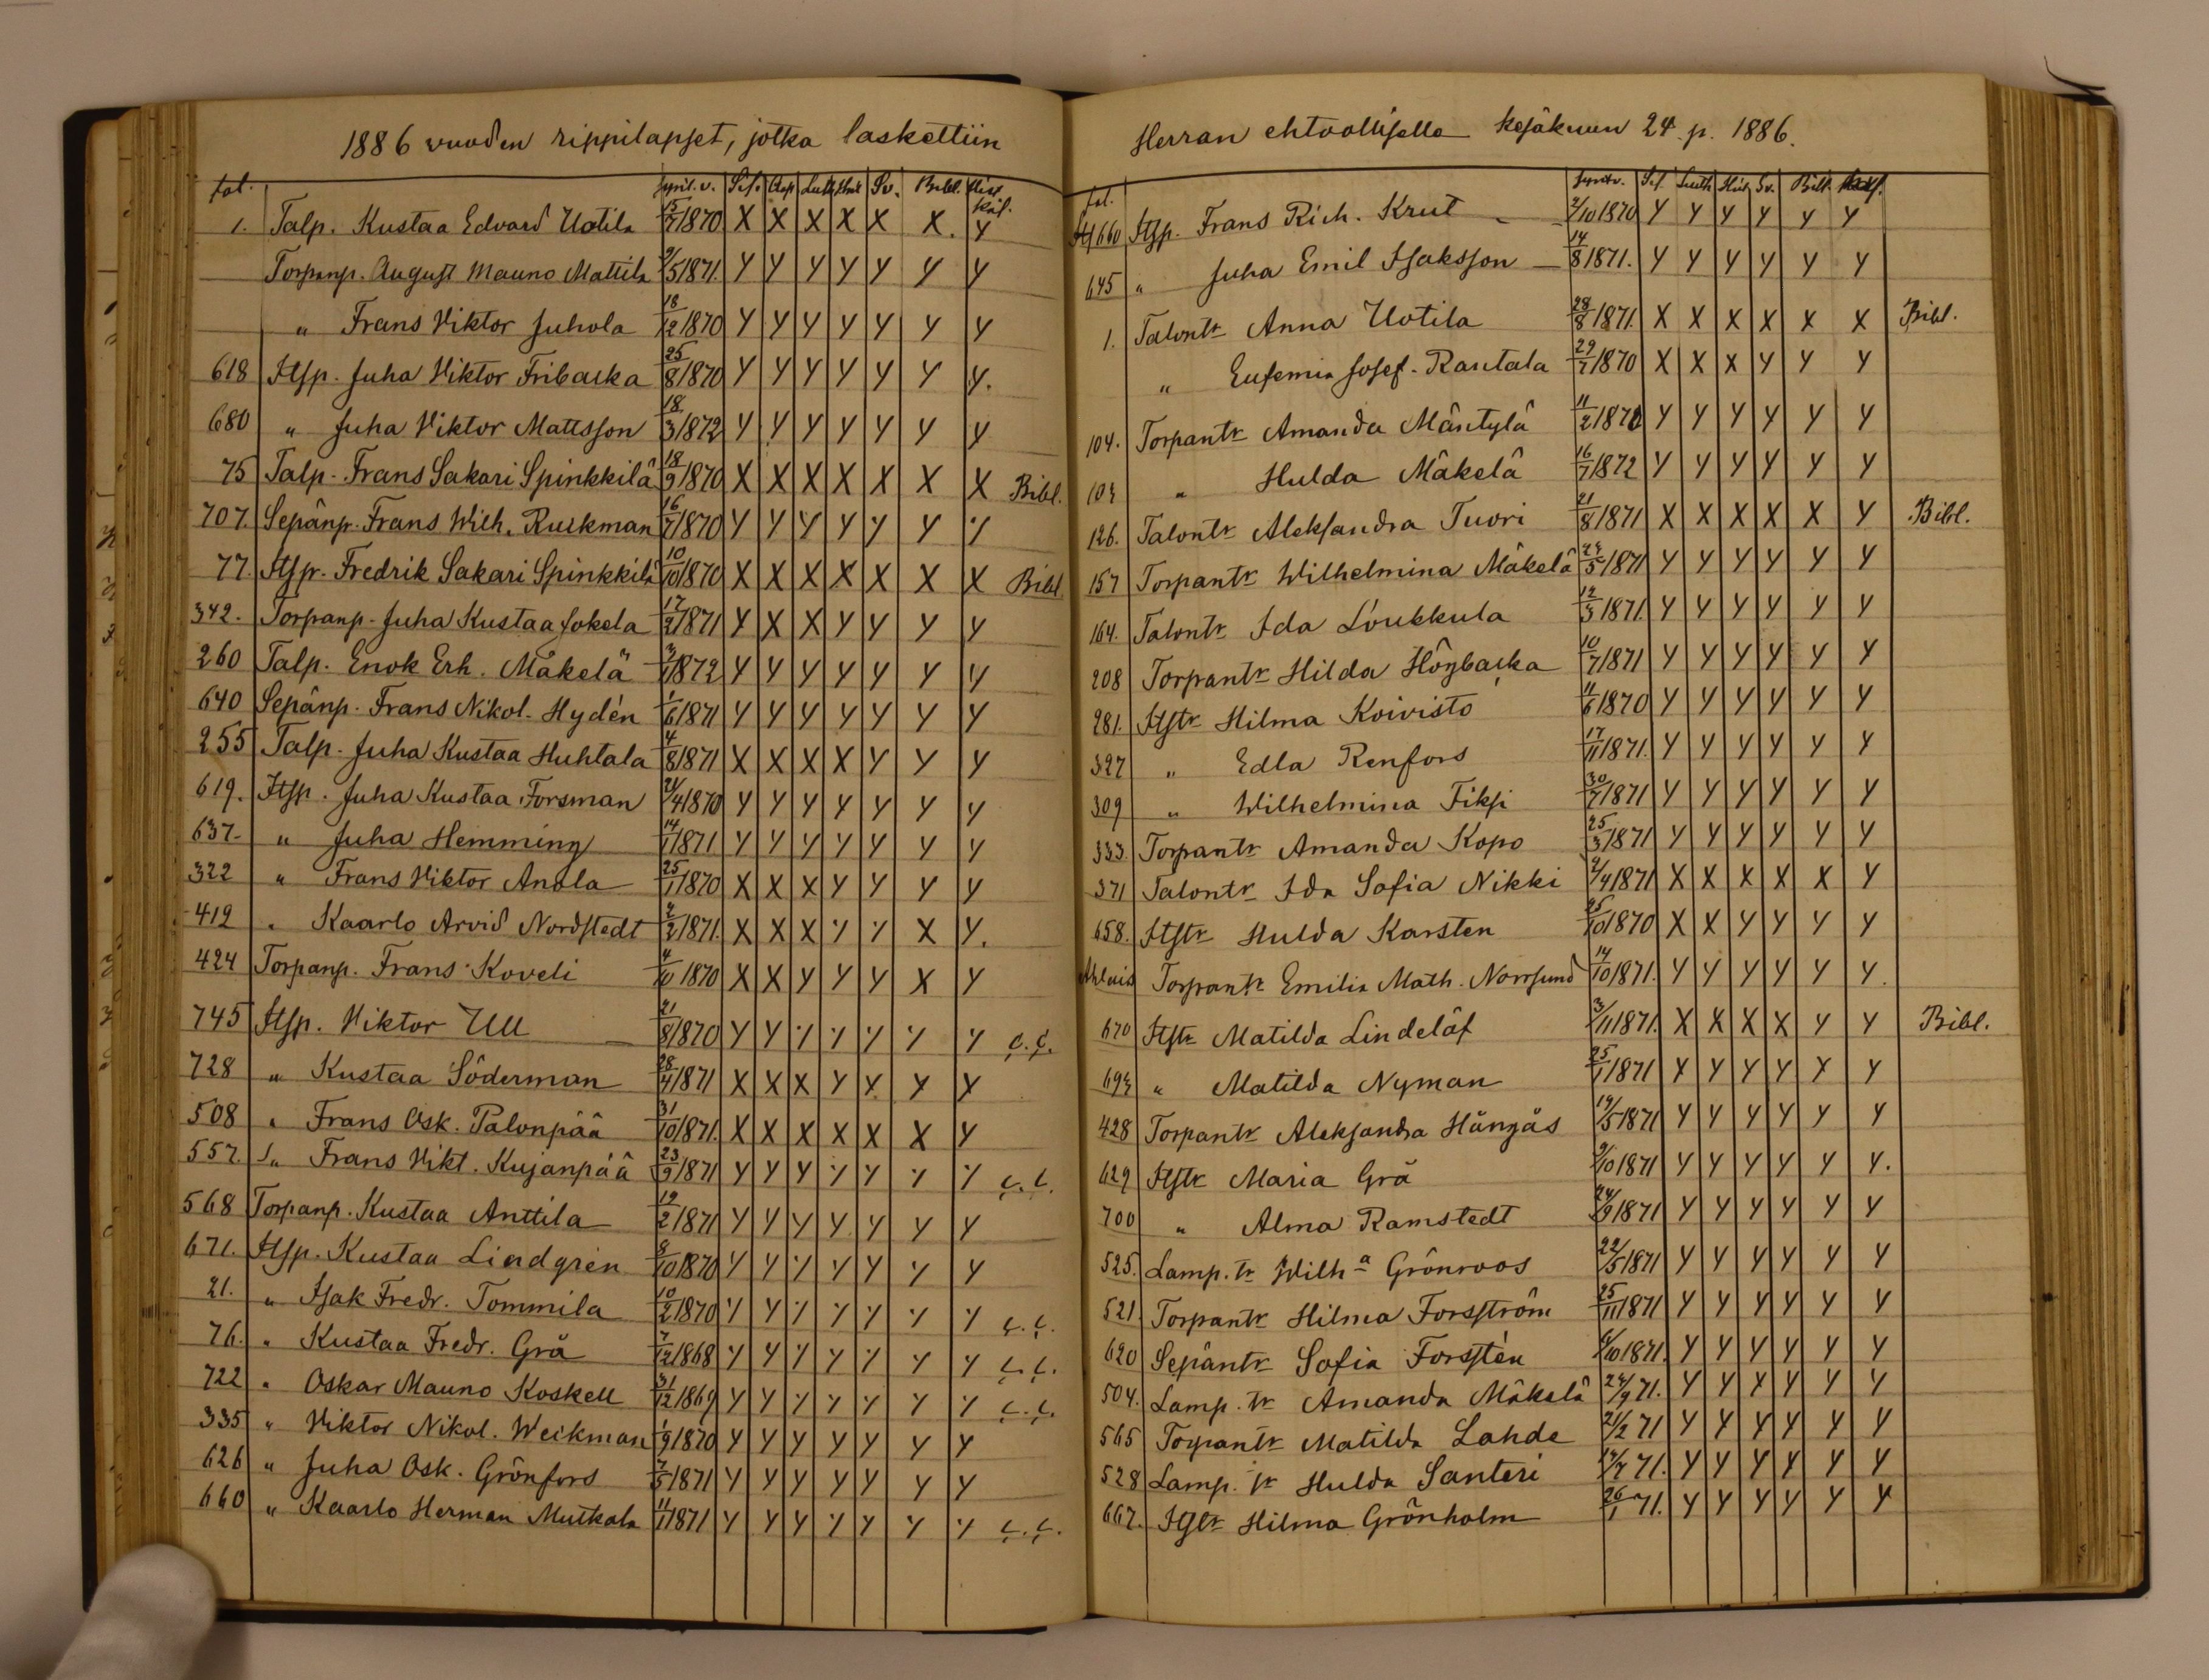 1886 vuoden rippilapset, jotka laskettiin
fol. synt. v. Sis. Asp Luth Hust Sv. Bibl. Hist Käs.
1. Talp. Kustaa Edvard Uotila 15/7 1870 X X X X X X. Y
Torpanp. August Mauno Mattila 9/5 1871. Y Y Y Y Y Y Y
" Frans Viktor Juhola 18/12 1870 Y Y Y Y Y Y Y
618 Itsp. Juha Viktor Fribacka 25/8 1870 Y Y Y Y Y Y Y.
680 " Juha Viktor Mattsson 18/3 1872 Y Y Y Y Y Y Y
75 Talp. Frans Sakari Spinkkilä 18/9 1870 X X X X X X X Bibl.
707. Sepänp. Frans Wilh. Ruckman 16/7 1870 Y Y Y Y Y Y Y
77. Itsp. Fredrik Sakari Spinkkilä 10/10 1870 X X X X X X X Bibl.
342. Torpanp. Juha Kustaa Jokela 17/2 1871 Y X X Y Y Y Y
260 Talp. Enok Erh. Mäkelä 3/1 1872 Y Y Y Y Y Y Y
640 Sepänp. Frans Nikol. Hydén 1/6 1871 Y Y Y Y Y Y Y
255 Talp. Juha Kustaa Huhtala 4/8 1871 X X X X Y Y Y
619. Itsp. Juha Kustaa Forsman 21/4 1870 Y Y Y Y Y Y Y
637. " Juha Hemming 14/1 1871 Y Y Y Y Y Y Y
322 " Frans Viktor Anola 25/1 1870 X X X Y Y Y Y
412 " Kaarlo Arvid Nordstedt 2/2 1871. X X X Y Y X Y.
424 Torpanp. Frans Koveli 4/10 1870 X X Y Y Y X Y
745 Itsp. Viktor Ull 21/8 1870 Y Y Y Y Y Y Y c.c.
728 " Kustaa Söderman 28/4 1871 X X X Y X Y X
508 " Frans Osk. Palonpää 31/10 1871. X X X X X X Y
557. " Frans Vikt. Kujanpää 23/9 1871 Y Y Y Y Y Y Y c.c.
568 Torpanp. Kustaa Anttila 19/2 1871 Y Y Y Y Y Y Y
671. Itsp. Kustaa Lindgrén 8/10 1870 Y Y Y Y Y Y Y
21. " Isak Fredr. Tommila 10/2 1870 Y Y Y Y Y Y Y c.c.
76. " Kustaa Fredr. Grå 7/12 1868 Y Y Y Y Y Y Y c.c.
722 " Oskar Mauno Koskell 31/12 1869 Y Y Y Y Y Y Y c.c.
335 " Viktor Nikol. Weckman 1/9 1870 Y Y Y Y Y Y Y
626 " Juha Osk. Grönfors 7/5 1871 Y Y Y Y Y Y Y
660 " Kaarlo Herman Mutkala 11/1 1871 Y Y Y Y Y Y Y c.c.
Herran ehtoolliselle kesäkuun 24 p. 1886.
fol. synt. v. Sis Luth Hist Sv. Bibl.
660 Itsp. Frans Rich. Krut 2/10 1870 Y Y Y Y Y Y
645 " Juha Emil Isaksson 14/8 1871. Y Y Y Y Y Y
1. Talontr Anna Uotila 28/8 1871. X X X X X X Bibl.
" Eufemia Josef. Rantala 29/7 1870 X X X Y Y Y
104. Torpantr Amanda Mäntylä 11/2 1870 Y Y Y Y Y Y
103 " Hulda Mäkelä 16/7 1872 Y Y Y Y Y Y
126. Talontr Aleksandra Tuori 21/8 1871 X X X X X Y Bibl.
157 Torpantr Wilhelmina Mäkelä 24/5 1871 Y Y Y Y Y Y
164. Talontr Ida Loukkula 12/3 1871. Y Y Y Y Y Y
208 Torpantr Hilda Högbacka 10/7 1871 Y Y Y Y Y Y
281. Itstr Hilma Koivisto 11/6 1870 Y Y Y Y Y Y
327 " Edla Renfors 17/11 1871. Y Y Y Y Y Y
309 " Wilhelmina Fiksi 30/7 1871 Y Y Y Y Y Y
333. Torpantr Amanda Kopo 25/3 1871 Y Y Y Y Y Y
371 Talontr Ida Sofia Nikki 2/4 1871 X X X X X Y
658. Itstr Hulda Karsten 25/10 1870 X X Y Y Y Y
Ahlais Torpantr Emilia Math. Norrsund 14/10 1871. Y Y Y Y Y Y.
670 Itstr Matilda Lindelöf 3/11 1871. X X X X Y Y Bibl.
693 " Matilda Nyman 25/1 1871 X Y Y Y X Y
428 Torpantr Aleksandra Hängäs 19/5 1871 Y Y Y Y Y Y
629 Itstr Maria Grå 9/10 1871 Y Y Y Y Y Y.
700 " Alma Ramstedt 24/9 1871 Y Y Y Y Y Y
525. Lamp. tr Wilh:a Grönroos 22/5 1871 Y Y Y Y Y Y
521. Torpantr Hilma Forsström 25/11 1871 Y Y Y Y Y Y
620 Sepäntr Sofia Forstén 6/10 1871. Y Y Y Y Y Y
504. Lamp. tr Amanda Mäkelä 24/9 71. Y Y X Y Y Y
565 Torpantr Matilda Lahde 21/2 71 Y Y Y Y Y Y
528 Lamp. tr Hulda Santeri 17/7 71. Y Y Y Y Y Y
667. Itstr Hilma Grönholm 26/1 71. Y Y Y Y Y Y